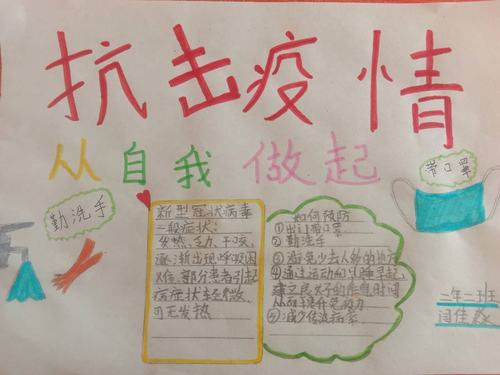 抗击疫情
从自我做起
带口罩
勤洗手
新型冠状病毒
一般症状:
发热、乏力、干咳、
逐渐出现呼吸困
难,部分患者引起
病症状轻微,
可无发热
如何预防
①出门带口罩
②勤洗手
③避免少去人多的地方
④通过运动的早睡早起,
建立良好的作息时间
从而提升免疫力
⑤减少传染病率
二年二班
闫佳